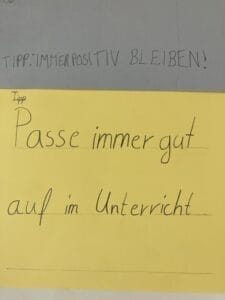 TIPP: IMMER POSITIV BLEIBEN!
Tipp
Passe immer gut
auf im Unterricht